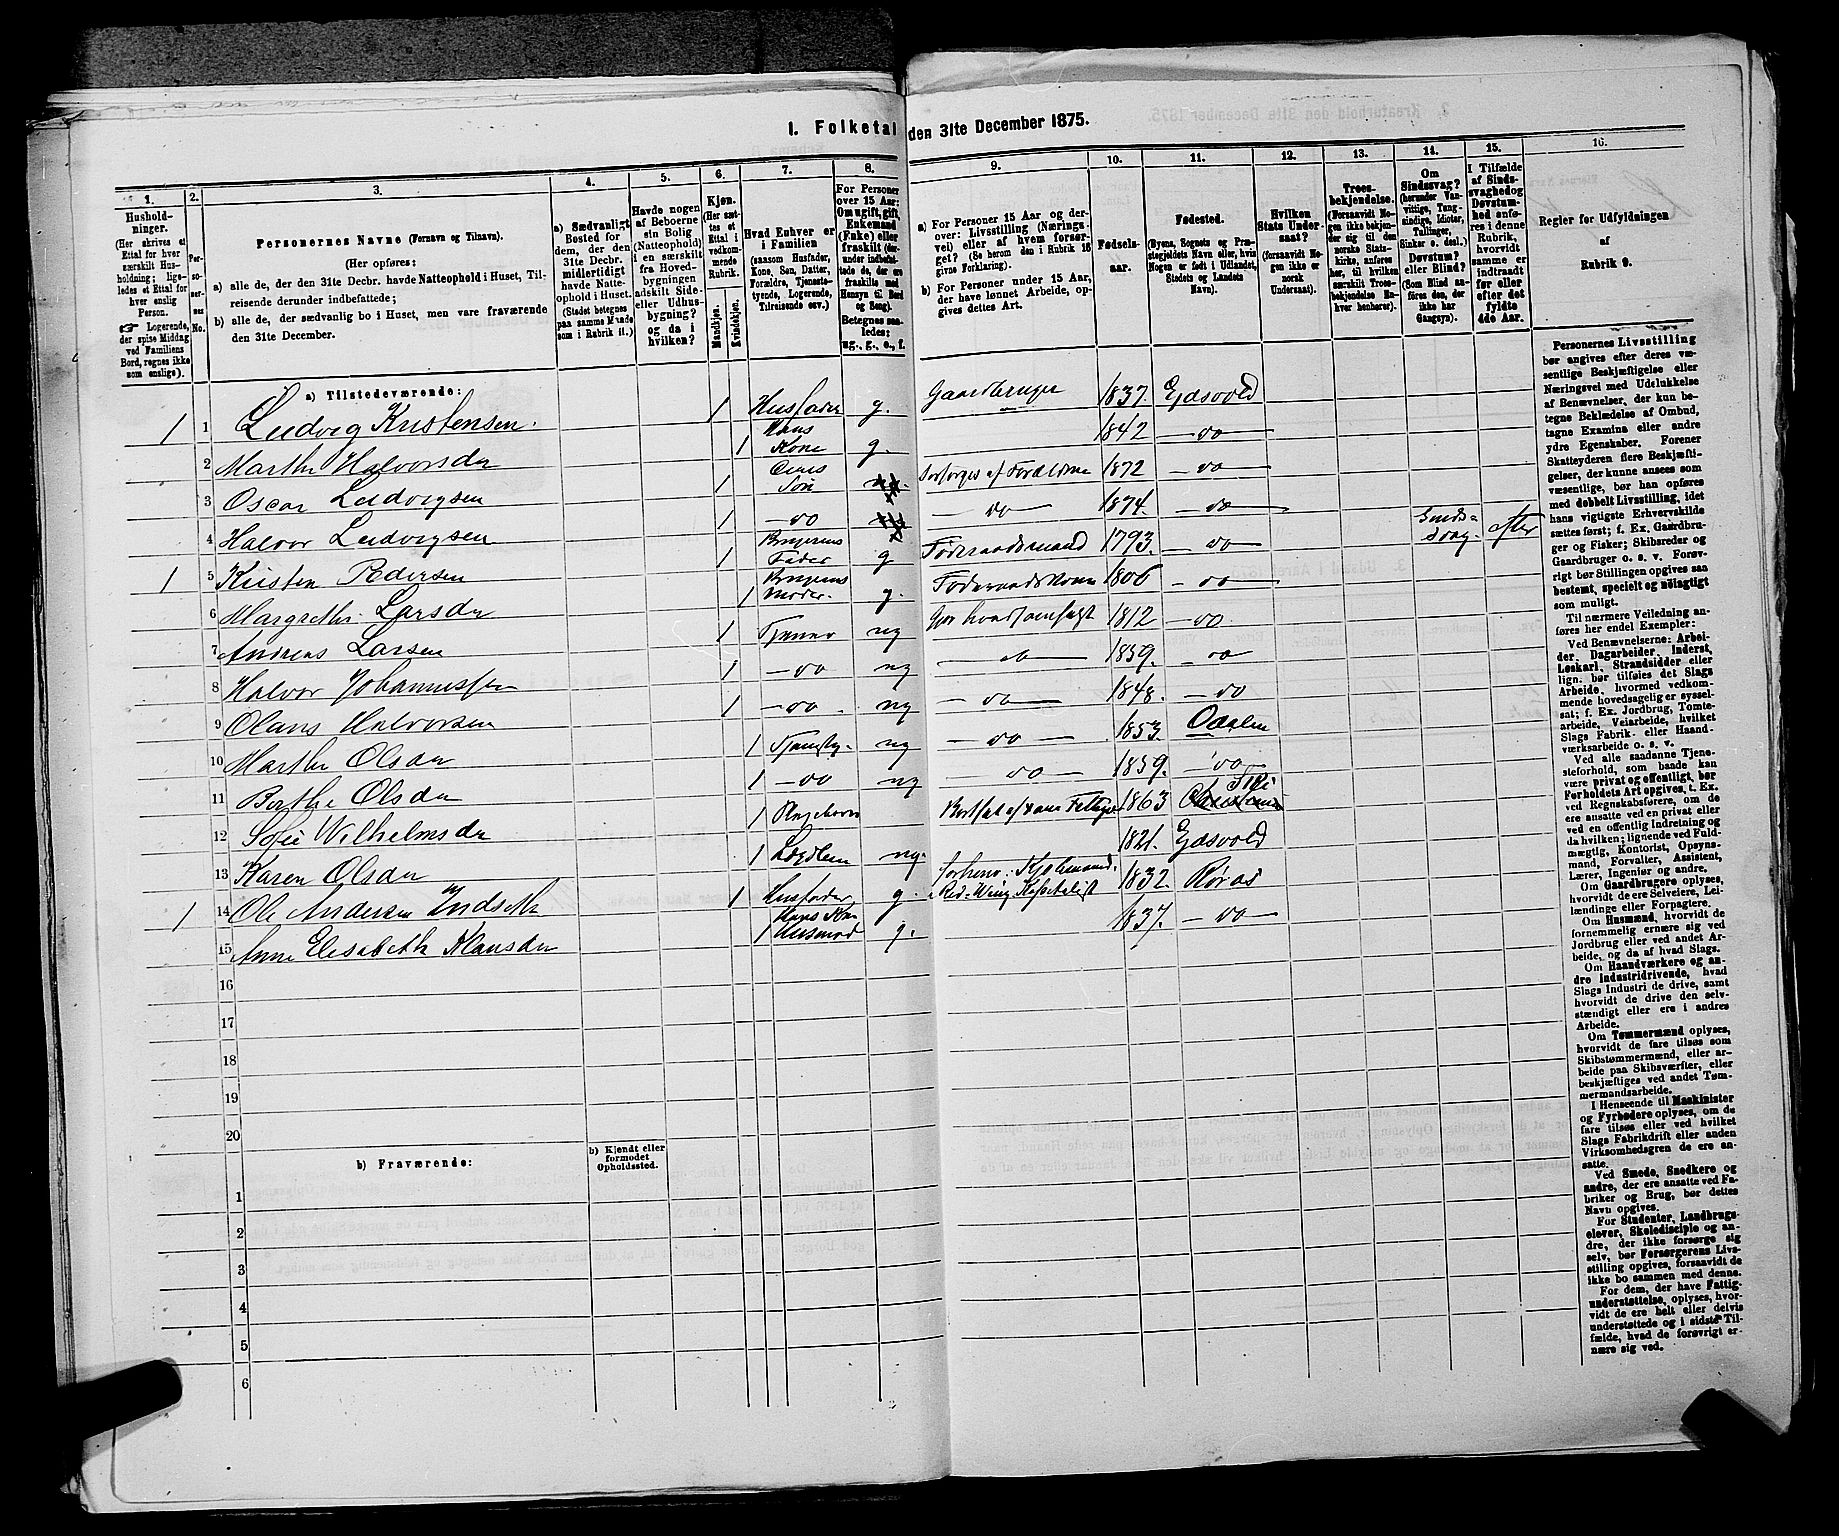 1. Folketal den 31te December 1875.
1. 2. 3. 4. 5. 6. 7. 8. 9. 10. 11. 12. 13. 14. 15. 16.
Husholdninger.
(Her skrives et
Ettal for hver
særskilt Husholdning;
ligeledes et Ettal for
hver enslig
Person.
☞ Logerende,
der spise Middag
ved Familiens
Bord, regnes ikke
som enslige).
Personernes No.
Personernes Navne (Fornavn og Tilnavn).
(Her opføres:
a) alle de, der den 31te Decbr. havde Natteophold i Huset, Tilreisende derunder indbefattede;
b) alle de, der sædvanlig bo i Huset, men vare fraværende
den 31te December.
a) Sædvanligt
Bosted for
dem, der den
31te Decbr.
midlertidigt
havde Natteophold i Huset.
(Stedet betegnes
paa samme Maade
som i Rubrik 11.)
Havde nogen
af Beboerne
sin Bolig
(Natteophold)
i en særskilt
fra Hovedbygningen
adskilt Side-
eller Udhusbygning?
og da i
hvilken?
Kjøn.
(Her sættes et
Ettal i
vedkommende
Rubrik.
Mandkjøn.
Kvindekjøn.
Hvad Enhver er
i Familien
(saasom Husfader,
Kone, Søn, Datter,
Forældre, Tjenestetyende, Logerende,
Tilreisende osv.)
For Personer
over 15 Aar:
Om ugift, gift,
Enkemand
(Enke) eller
fraskilt (derunder indbefattede de, der ere
fraskilte med
Hensyn til Bord
og Seng).
Betegnes saaledes:
ug., g., e., f.
a) For Personer 15 Aar og derover: Livsstilling (Næringsvei) eller af hvem forsørget? (Se herom den i Rubrik 16
givne Forklaring).
b) For Personer under 15 Aar,
der have lønnet Arbeide, opgives dettes Art.
Fødselsaar.
Fødested.
(Byens, Sognets og Præstegjeldets Navn eller, hvis
Nogen er født i Udlandet,
Stedets og Landets
Navn).
Hvilken
Stats Undersaat?
(forsaavidt Nogen ikke er
norsk
Undersaat).
Troesbekjendelse.
(Forsaavidt Nogen ikke bekjender sig til den
norske Statskirke, anføres
her, til hvilken
særskilt Troesbekjendelse Enhver henhører).
Om
Sindssvag?
(herunder Vanvittige, Tungsindige, Idioter,
Tullinger,
Sinker o. desl.)
Døvstum?
eller Blind?
(Som Blind anføres den, der
ikke har
Gangsyn).
I Tilfælde
af Sindssvaghed og
Døvstumhed anføres i denne
Rubrik,
hvorvidt
samme er
indtraadt
før eller
efter det
fyldte
4de Aar.
Regler for Udfyldningen
af
Rubrik 9.
a) Tilstedeværende:
1 1 Ludvig Kristensen. 1 Husfader g. Gaardbruger 1837. Eidsvold
2 Marthe Halvorsdr 1 Hans Kone g. 1842 — do
3 Oscar Ludvigsen 1 Deres Søn Forsørges af Forældrene 1872 — do
4 Halvor Ludvigsen 1 — do — do — 1874. — do
1 5 Kristen Pedersen 1 Brugerens Fader g Føderaadsmand 1793. — do Sindssvag. efter
6 Margrethe Larsdr 1 Brugerens Moder. g. Føderaadskone 1806 — do
7 Andreas Larsen 1 Tjener ug 1812 — do
8 Halvor Johannessen 1 — do ug — do — 1859. — do
9 Olaus Halvorsen 1 — do. ug — do — 1848. — do
10 Marthe Olsdr 1 ug — do — 1853. Odalen
11 Berthe Olsdr 1 — do ug do — 1859. do
12 Sofie Wilhelmsdr 1 1863 Ski
13 Karen Olsdr 1 ug. 1821. Eidsvold
1 14 Ole Andersen 1 Husfader g. 1832. Røros
15 Anne Elisabeth Klausdr 1 Hans Kone Husmod g. 1837. — do
16
17
18
19
20
b) Fraværende:
b) Kjendt eller
formodet
Opholdssted.
1
2
3
4
5
6
Personernes Livsstilling
bør angives efter deres væsentlige Beskjæftigelse eller
Næringsvei med Udelukkelse
af Benævnelser, der kun betegne Beklædelse af Ombud,
tagne Examina eller andre
ydre Egenskaber. Forener
Skatteyderen flere Beskjæftigelser, der kunne ansees som
væsentlige, bør han opføres
med dobbelt Livsstilling, idet
hans vigtigste Erhvervskilde
sættes først; f. Ex. Gaardbruger og Fisker; Skibsreder og
Gaardbruger o. s. v. Forøvrigt bør Stillingen opgives saa
bestemt, specielt og nøiagtigt
som muligt.
Til nærmere Veiledning anføres her endel Exempler:
Ved Benævnelserne: Arbeider, Dagarbeider, Inderst,
Løskarl, Strandsidder eller
lign. bør tilføies det Slags
Arbeide, hvormed vedkommende hovedsagelig er sysselsat; f. Ex. Jordbrug, Tomtearbeide, Veiarbeide, hvilket
Slags Fabrik- eller Haandværksarbeide o. s. v.
Ved alle saadanne Tjenesteforhold, som baade kan
være privat og offentligt, bør
Forholdets Art opgives, t. Ex.
ved Regnskabsførere, om de
ere ansatte ved en privat eller
ved en offentlig Indretning og
da hvilken; lignende ved Fuldmægtig, Kontorist, Opsynsmand, Forvalter, Assistent,
Lærer, Ingeniør og andre.
Om Gaardbrugere oplyses,
hvorvidt de ere Selveiere, Leilændinge eller Forpagtere.
Om Husmænd, hvorvidt de
fornemmelig ernære sig ved
Jordbrug eller ved andet Arbeide, og da af hvad Slags.
Om Haandværkere og andre Industridrivende, hvad
Slags Industri de drive, samt
hvorvidt de drive den selvstændigt eller ere i andres
Arbeide.
Om Tømmermænd oplyses,
hvorvidt de fare tilsøs som
Skibstømmermænd, eller arbeide paa Skibsværfter, eller
beskjæftiges ved andet Tømmermandsarbeide.
I Henseende til Maskinister
og Fyrbødere oplyses, om de
fare tilsøs eller ved hvilket
Slags Fabrikdrift eller anden
Virksomhedsgren de ere ansatte.
Ved Smede, Snedkere og
andre, der ere ansatte ved Fabriker og Brug, bør dettes
Navn opgives.
For Studenter, Landbrugselever, Skoledisciple og andre, der ikke forsørge sig
selv, bør Forsørgerens Livsstilling opgives, forsaavidt de
ikke bo sammen med denne.
For dem, der have Fattigunderstøttelse, oplyses, hvorvidt de ere helt eller delvis
understøttede og i sidste Tilfælde, hvad de forøvrigt ernære sig ved.